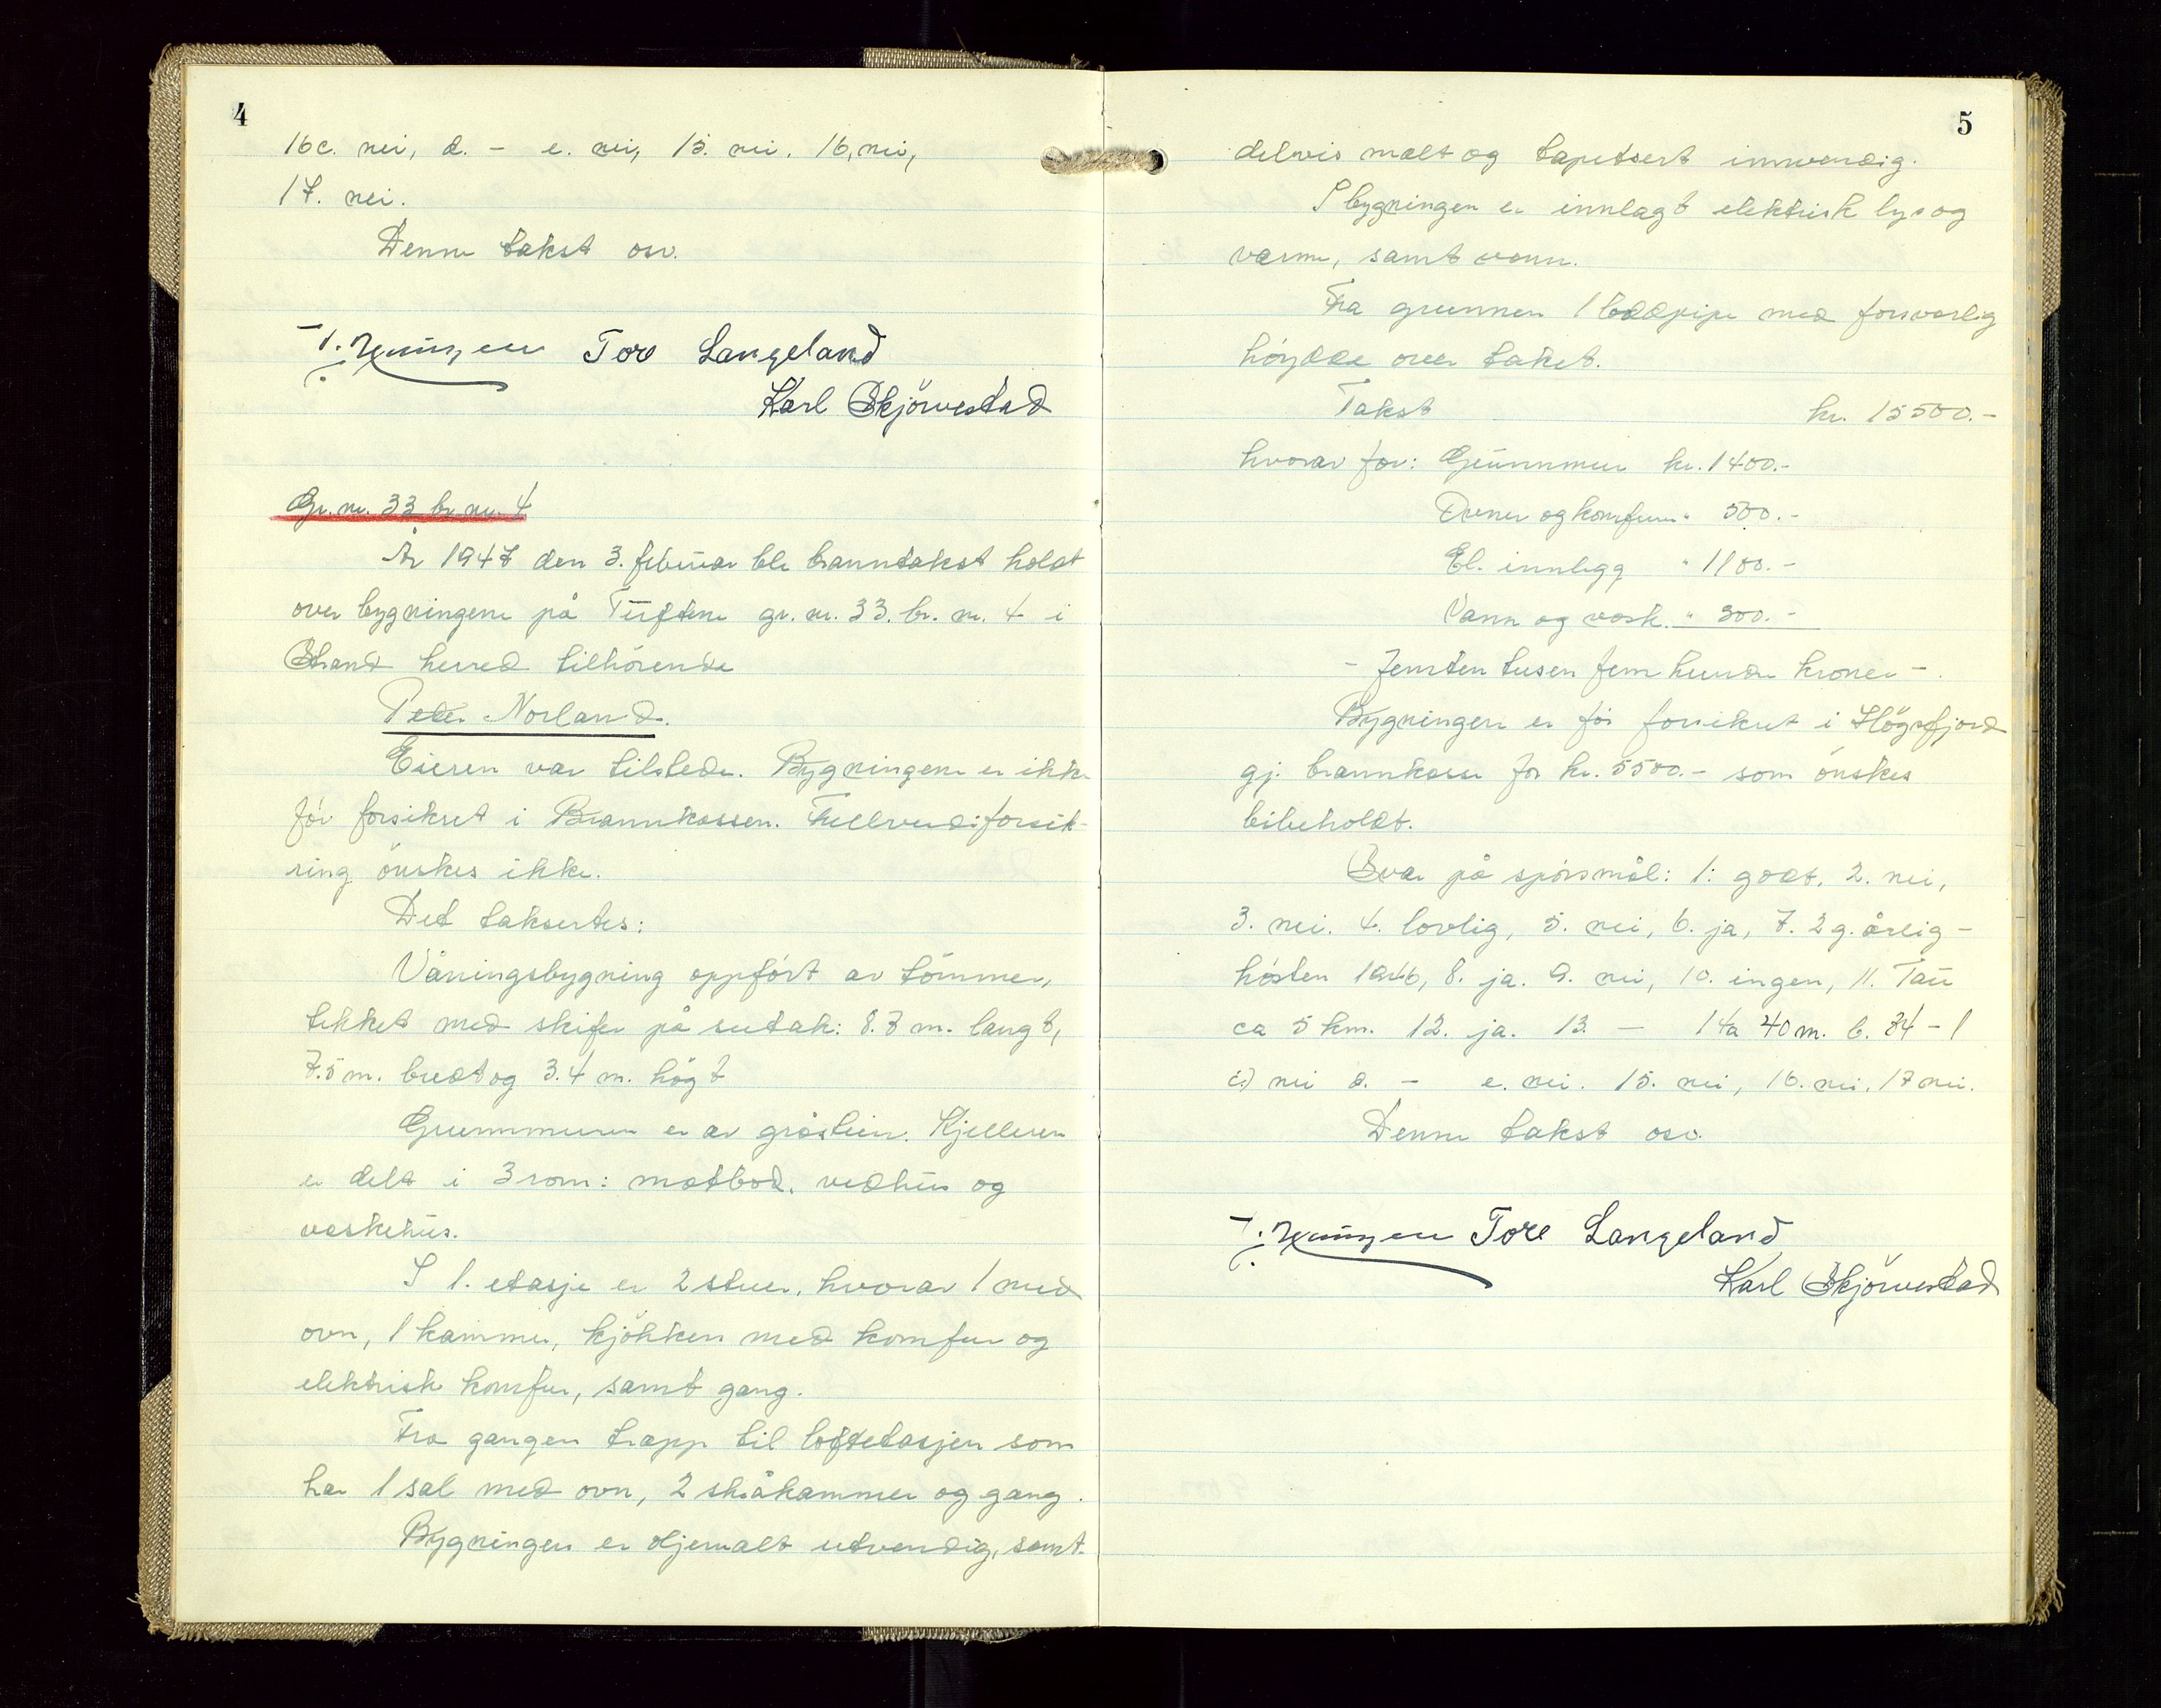 4
16c. nei, d. - e. nei, 15. nei. 16, nei,
17. nei.
Denne takst osv.
Tore Langeland
Karl Skjörvestad
Gr. nr. 33 br. nr. 4
År 1947 den 3. februar ble branntakst holdt
over bygningene på Tuftene gr. nr. 33. br. nr. 4 i
Strand herred tilhörende
Peder Norland.
Eieren var tilstede. Bygningene er ikke
för forsikret i Brannkassen. Fullverdiforsik-
ring önskes ikke.
Det taksertes:
Våningsbygning oppfört av tömmer,
tekket med skifer på sutak: 8.7 m. langt,
7.5 m. bredt og 3.4 m. högt
Grunnmuren er av gråstein. Kjelleren
er delt i 3 rom: matbod, vedhus og
vaskehus.
I 1. etasje er 2 stuer, hvorav 1 med
ovn, 1 kammer, kjökken med komfur og
elektrisk komfur, samt gang.
Fra gangen trapp til loftetasjen som
har 1 sal med ovn, 2 skråkammer og gang.
Bygningen er oljemalt utvendig, samt
5
delvis malt og tapetsert innvendig.
I bygningen er innlagt elektrisk lys og
varme, samt vann.
Fra grunnen 1 loddpipe med forsvarlig
höyde over taket.
Takst kr. 15500.-
hvorav for: Grunnmur kr. 1400.-
Ovner og komfurer " 500.-
El. innlegg " 1100.-
Vann og vask. " 300.-
- Femten tusen fem hundre kroner -.
Bygningen er för forsikret i Högsfjord
gj. brannkasse for kr. 5500.- som önskes
bibeholdt.
Svar på spörsmål: 1: godt, 2. nei,
3. nei. 4. lovlig, 5. nei, 6. ja, 7. 2 g. årlig -
hösten 1946, 8. ja. 9. nei, 10. ingen, 11. Tau
ca 5 km. 12. ja. 13. - 14a 40 m. b. 34 - 1
c) nei d. - e. nei. 15. nei, 16. nei, 17 nei.
Denne takst osv.
Tore Langeland
Karl Skjörvestad